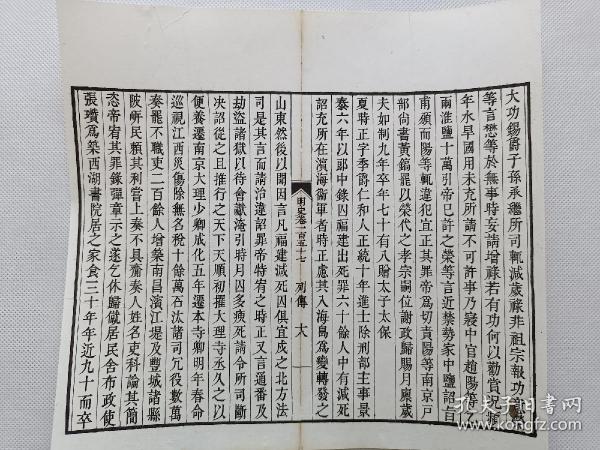 大功錫爵子孫承繼所司輒減歲祿非祖宗報功
等言懋等於無事時妄請增祿若有功何以勸賞況頻
年水旱國用未充所請不可許事乃寢中官趙陽等乞
兩淮鹽十萬引帝已許之榮等言近禁勢家中鹽詔旨
甫頒而陽等輒違犯宜正其罪帝爲切責陽等南京戶
部尚書黃鎬罷以榮代之孝宗嗣位謝政歸賜月廩歲
夫如制九年卒年七十有八贈太子太保
夏時正字季爵仁和人正統十年進士除刑部主事景
泰六年以郎中錄囚福建出死罪六十餘人中有減死
詔充所在濱海衞軍者時正慮其入海島爲變轉發之
明史卷一百五十七 列傳 大
山東然後以聞因言凡福建減死囚俱宜戍之北方法
司是其言而請治違詔罪帝特宥之時正又言通番及
劫盜諸獄以待會讞淹引時月囚多瘐死請令所司斷
决詔從之且推行之天下天順初擢大理寺丞久之以
便養遷南京大理少卿成化五年遷本寺卿明年春命
巡視江西災傷除無名稅十餘萬石汰諸司冗役數萬
奏罷不職吏二百餘人增築南昌濱江堤及豐城諸縣
陂岍民賴其利嘗上奏不具齎奏人姓名吏科論其簡
恣帝宥其罪錄彈章示之遂乞休歸僦居民舍布政使
張瓚爲築西湖書院居之家食三十年年近九十而卒